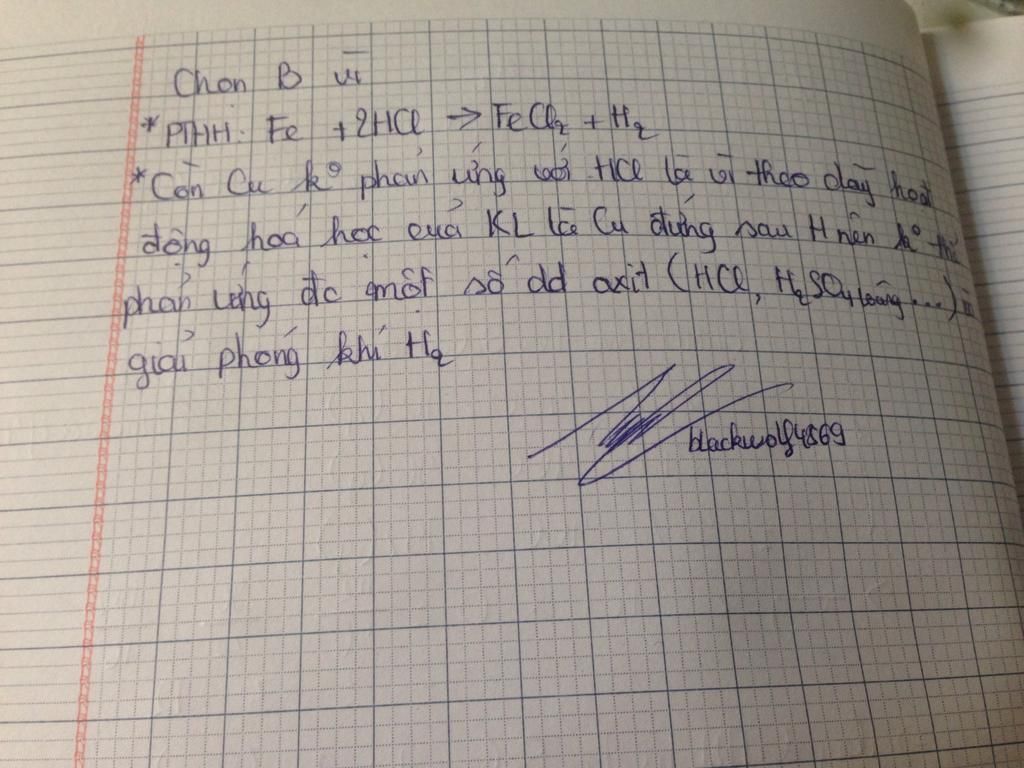 Chọn B vì
* PTHH: Fe + 2HCl → FeCl₂ + H₂
* Còn Cu kº phản ứng với HCl là vì theo dãy hoạt
động hoá học của KL là Cu đứng sau H nên kº thể
phản ứng đc một số dd axit (HCl, H₂SO₄ loãng ....)
giải phóng khí H₂
blackwolf4869